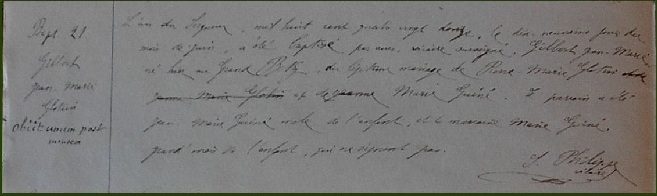 Bapt. 21
Gilbert
jean Marie
Glotin
obiit
post
L'an du Seigneur, mil huit cent quatre vingt douze, le dix neuvième jour du
mois de juin, a été baptisé par nous vicaire soussigné, Gilbert jean Marie
né hier au Grand, du légitime mariage de René Marie Glotin
jeanne Marie Glotin et de jeanne Marie Guéné. Le parrain a été
jean Marie Guéné oncle de l'enfant, et la marraine Marie Guéné,
grand'mère de l'enfant, qui ne signent pas.
J. Philippe
vicaire